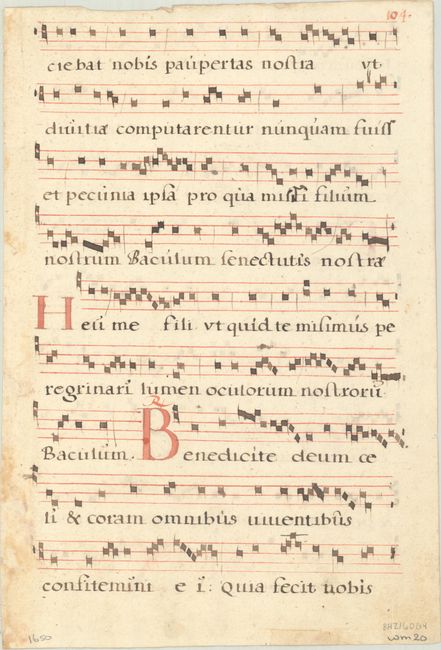 104.
ciebat nobis paupertas nostra vt
diuitiæ computarentur nunquam fuiss
et pecunia ipsa pro qua misisti filium
nostrum Baculum senectutis nostræ
Heu me fili vt quid te misimus pe
regrinari lumen oculorum nostrorū
Baculum. ℟ Benedicite deum cœ
li & coram omnibus uiuentibus
confitemini e i: Quia fecit uobis
1650
wm20